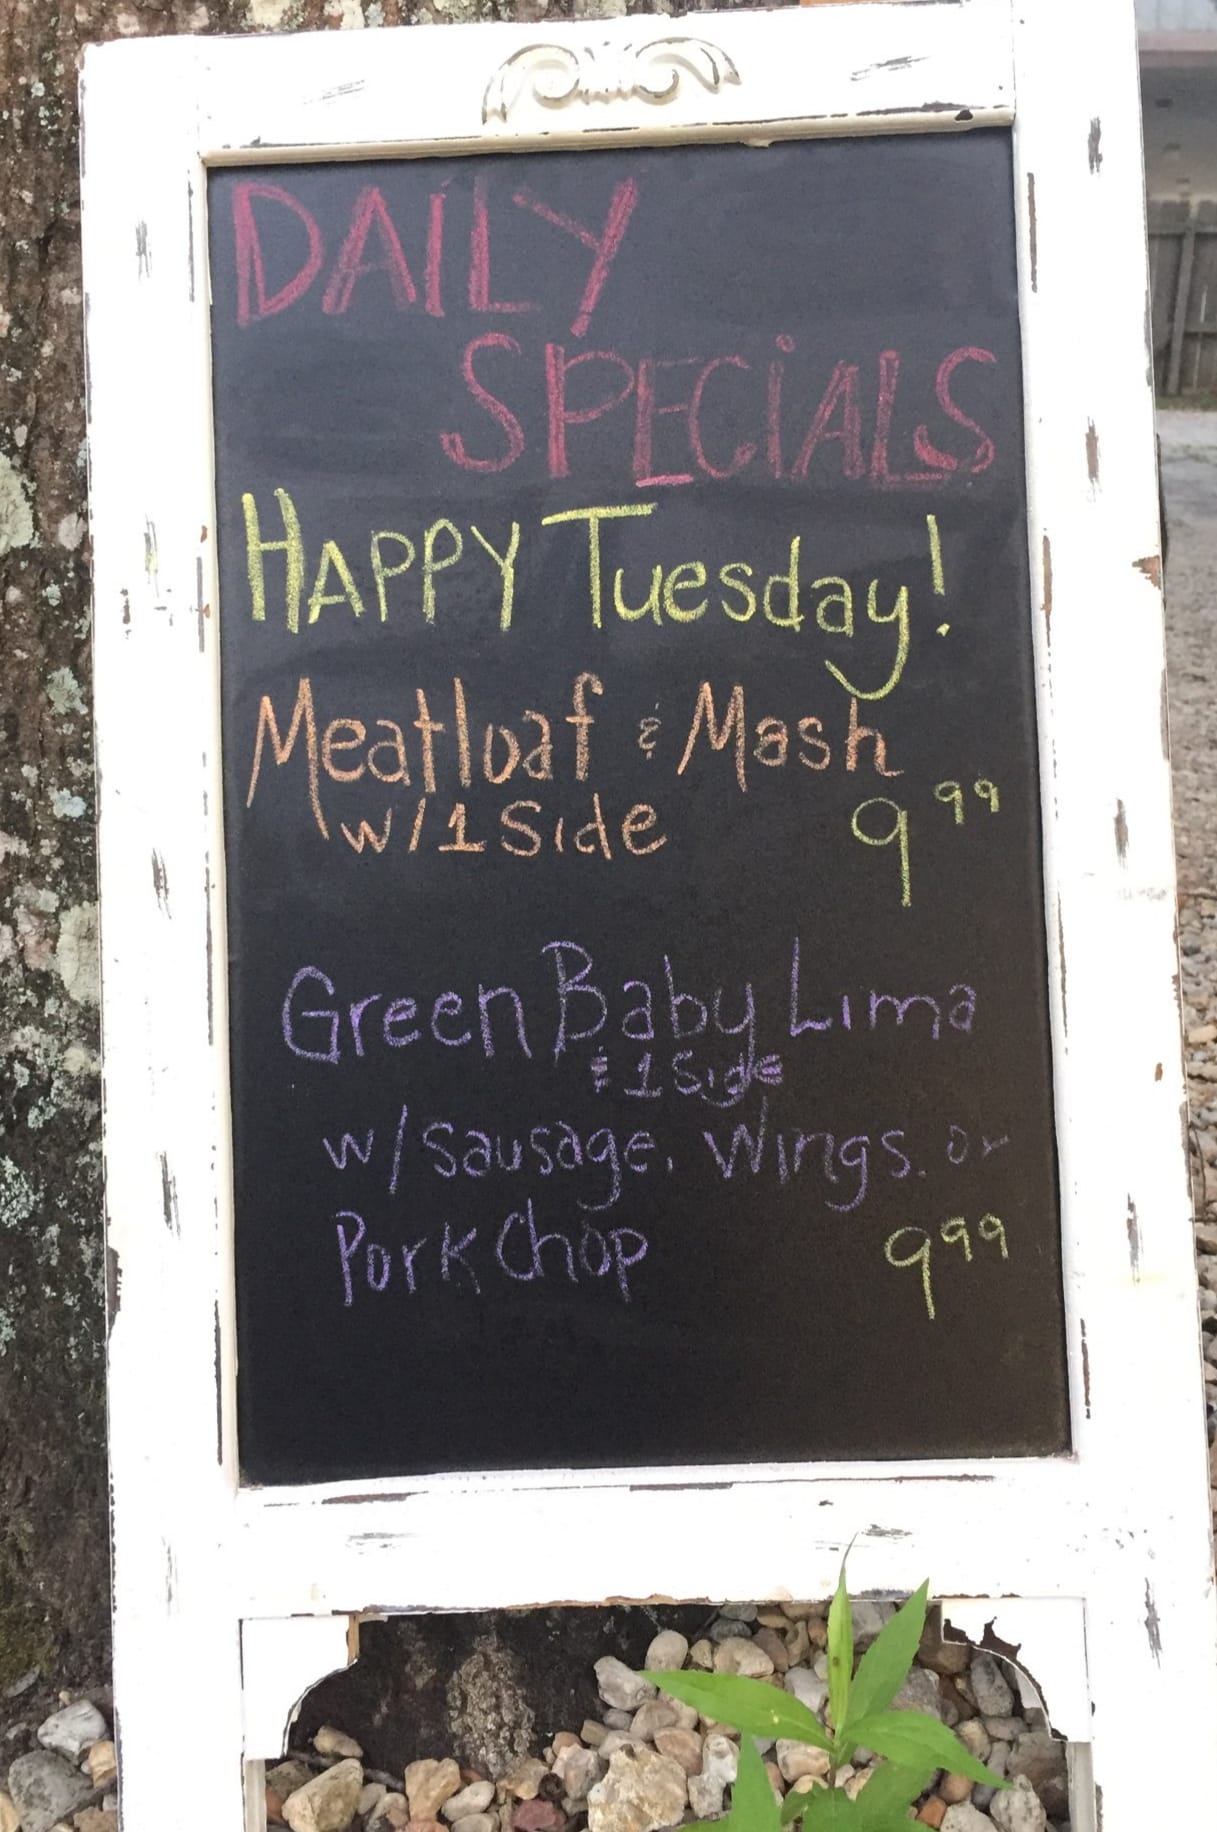 DAILY
SPECiALS
HAPPY Tuesday!
Meatloaf & Mash
w/1 Side 9 99
Green Baby Lima
& 1 Side
w/ Sausage, Wings, or
Pork Chop 9 99